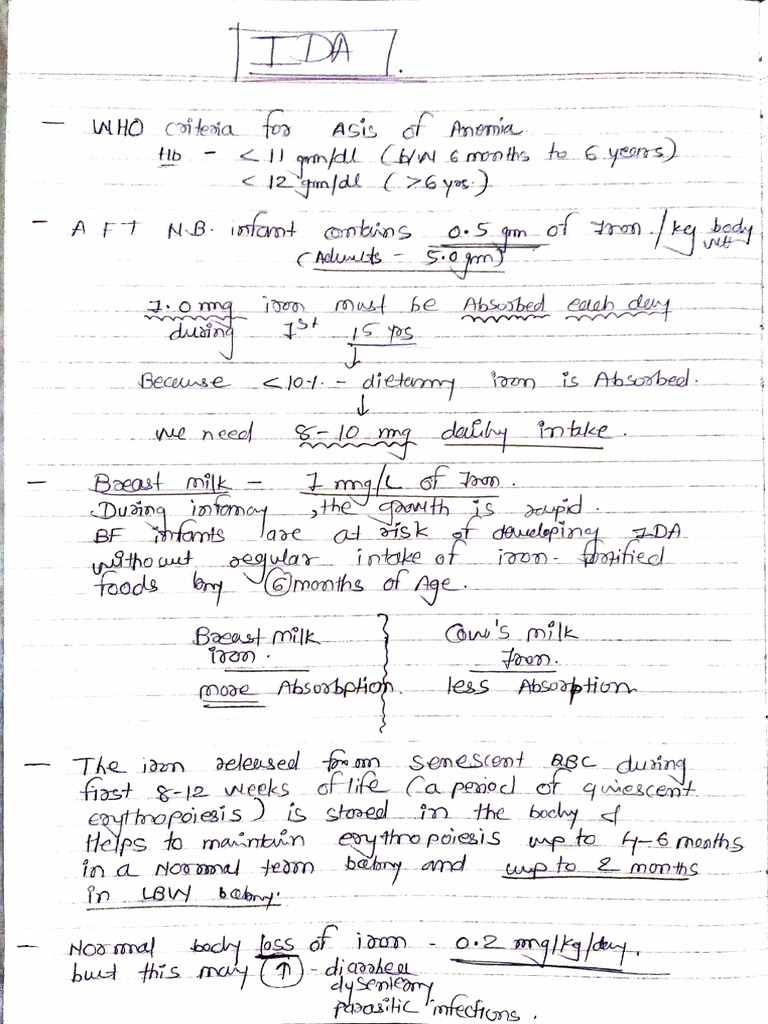 IDA.
— WHO criteria for Asis of Anemia
Hb - < 11 gm/dl (b/w 6 months to 6 years)
< 12 gm/dl (>6 yrs.)
— A FT N.B. infant contains 0.5 gm of Iron/kg body wt
(Adults - 5.0 gm)
1.0 mg iron must be Absorbed each day
during 1st 15 yrs
↓
Because <10% - dietary iron is Absorbed.
↓
we need 8-10 mg daily intake.
— Breast milk - 1 mg/L of Iron.
During infancy, the growth is rapid.
BF infants are at risk of developing IDA
without regular intake of iron-fortified
foods by 6 months of Age.
Breast milk Cow's milk
iron. Iron.
more Absorbption. less Absorption
— The iron released from senescent RBC during
first 8-12 weeks of life (a period of quiescent
erythropoiesis) is stored in the body &
Helps to maintain erythropoiesis up to 4-6 months
in a Normal term baby and up to 2 months
in LBW baby.
— Normal body loss of iron - 0.2 mg/kg/day.
but this may (↑) - diarrhea
dysentery
parasitic infections.